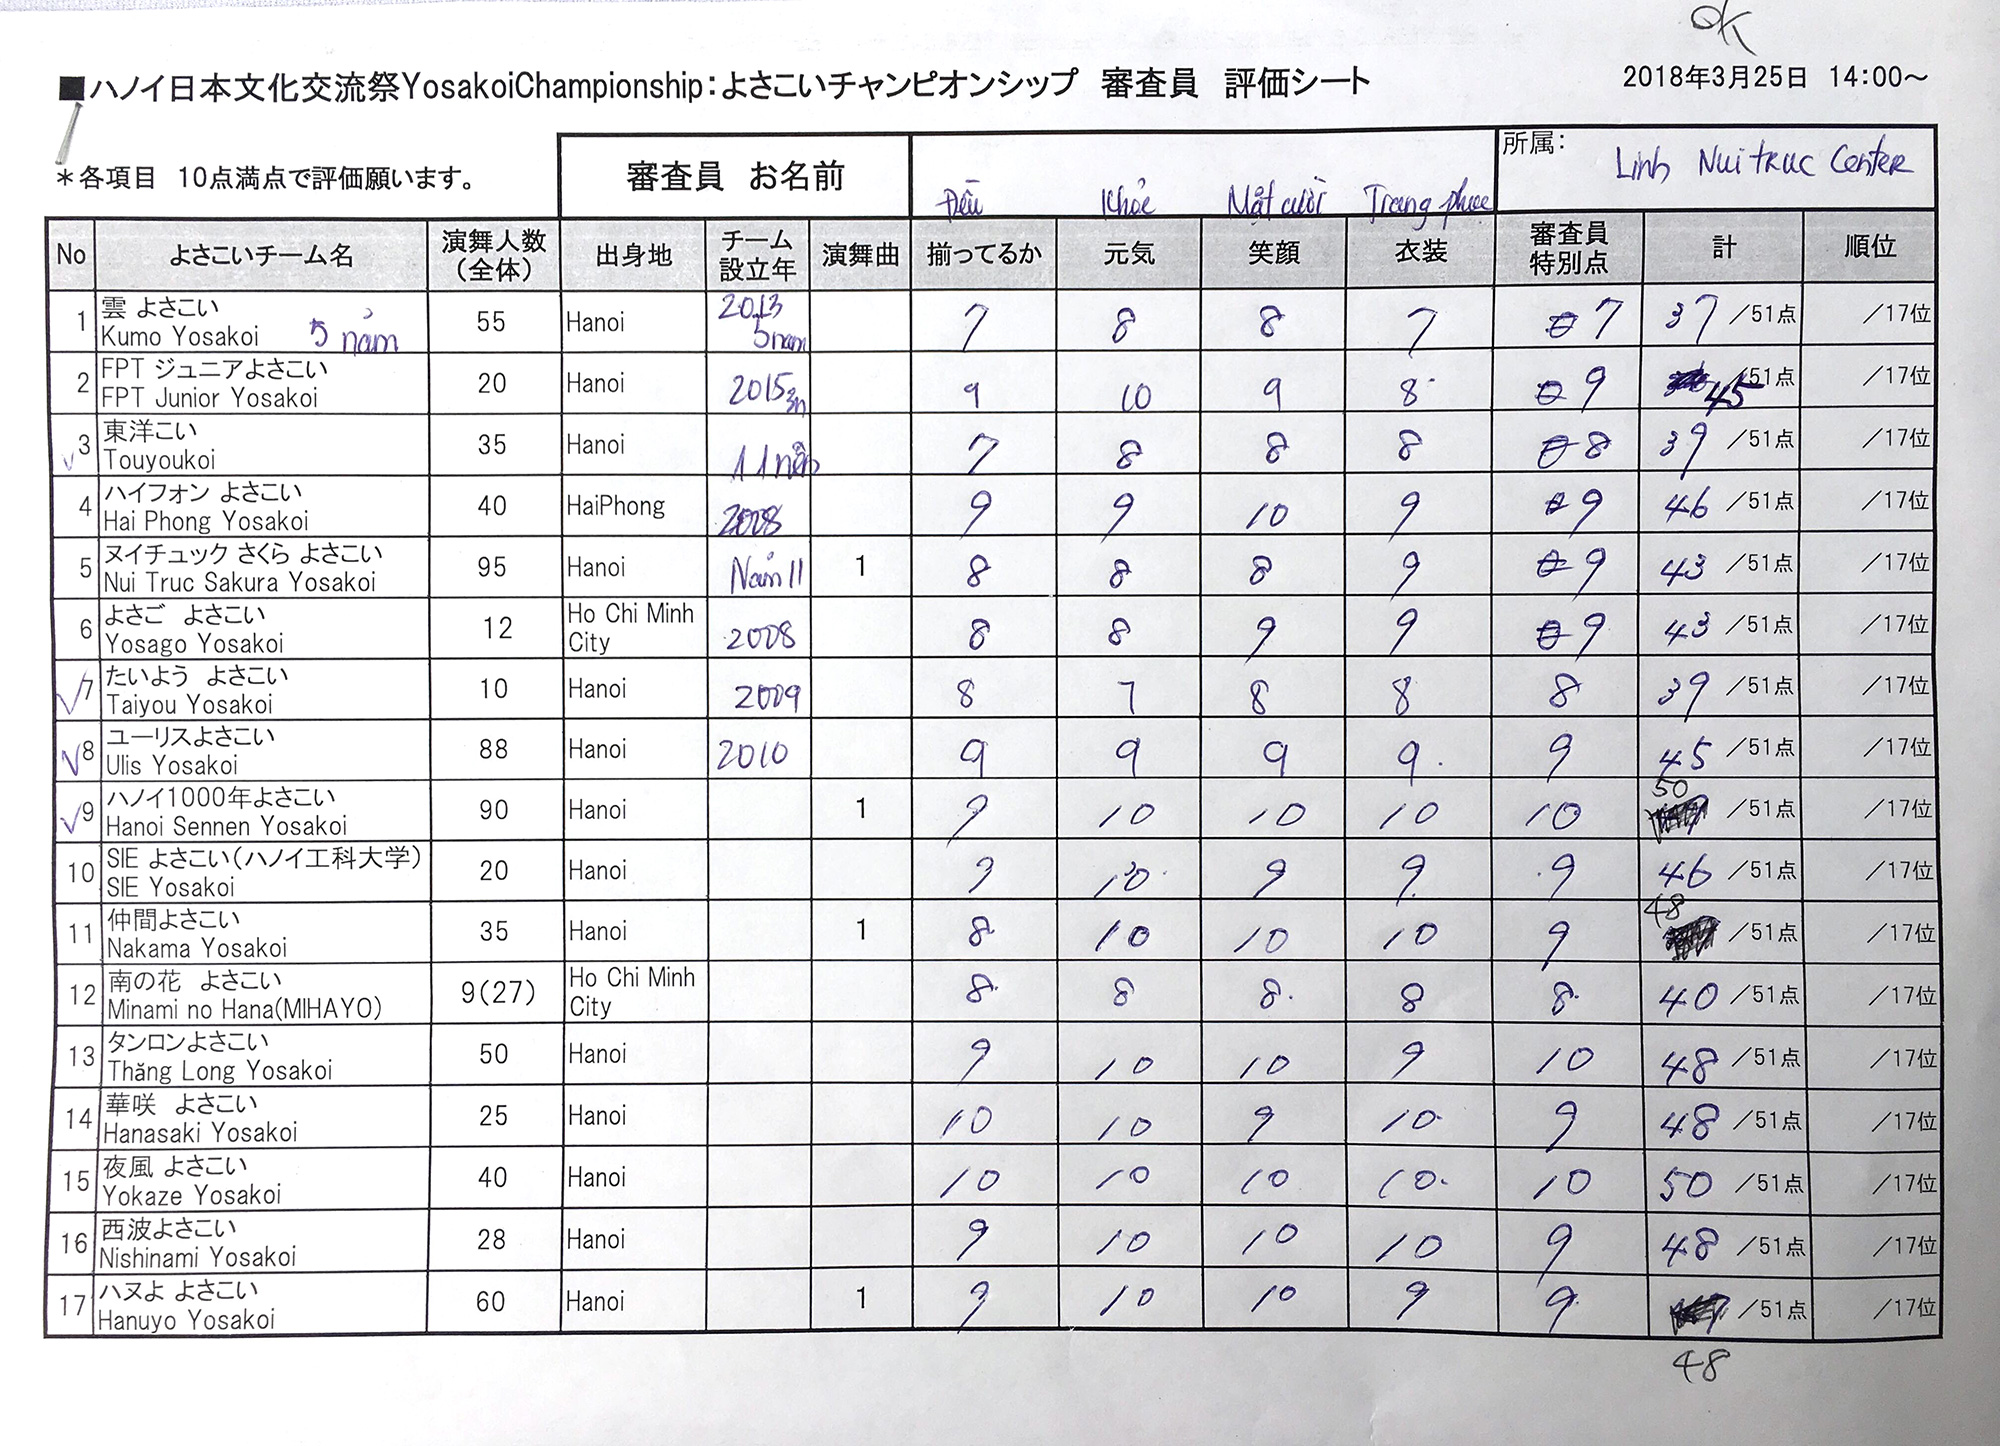 OK
■ハノイ日本文化交流祭YosakoiChampionship：よさこいチャンピオンシップ 審査員 評価シート 2018年3月25日 14:00～
＊各項目 10点満点で評価願います。 審査員 お名前 所属： Linh Nuitruc Center
Đều Khỏe Mặt cười Trang phục
No よさこいチーム名 演舞人数（全体） 出身地 チーム設立年 演舞曲 揃ってるか 元気 笑顔 衣装 審査員特別点 計 順位
1 雲 よさこい Kumo Yosakoi 5 năm 55 Hanoi 2013 5 năm 7 8 8 7 7 37 /51点 /17位
2 FPT ジュニアよさこい FPT Junior Yosakoi 20 Hanoi 2015 3n 9 10 9 8 9 45 /51点 /17位
3 東洋こい Touyoukoi 35 Hanoi 11 năm 7 8 8 8 8 39 /51点 /17位
4 ハイフォン よさこい Hai Phong Yosakoi 40 HaiPhong 2008 9 9 10 9 9 46 /51点 /17位
5 ヌイチュック さくら よさこい Nui Truc Sakura Yosakoi 95 Hanoi Năm 11 1 8 8 8 9 9 43 /51点 /17位
6 よさご よさこい Yosago Yosakoi 12 Ho Chi Minh City 2008 8 8 9 9 9 43 /51点 /17位
7 たいよう よさこい Taiyou Yosakoi 10 Hanoi 2009 8 7 8 8 8 39 /51点 /17位
8 ユーリスよさこい Ulis Yosakoi 88 Hanoi 2010 9 9 9 9 9 45 /51点 /17位
9 ハノイ1000年よさこい Hanoi Sennen Yosakoi 90 Hanoi 1 9 10 10 10 10 50 /51点 /17位
10 SIE よさこい（ハノイ工科大学） SIE Yosakoi 20 Hanoi 9 10 9 9 9 46 /51点 /17位
11 仲間よさこい Nakama Yosakoi 35 Hanoi 1 8 10 10 10 9 48 /51点 /17位
12 南の花 よさこい Minami no Hana(MIHAYO) 9(27) Ho Chi Minh City 8 8 8 8 8 40 /51点 /17位
13 タンロンよさこい Thăng Long Yosakoi 50 Hanoi 9 10 10 9 10 48 /51点 /17位
14 華咲 よさこい Hanasaki Yosakoi 25 Hanoi 10 10 9 10 9 48 /51点 /17位
15 夜風 よさこい Yokaze Yosakoi 40 Hanoi 10 10 10 10 10 50 /51点 /17位
16 西波よさこい Nishinami Yosakoi 28 Hanoi 9 10 10 10 9 48 /51点 /17位
17 ハヌよ よさこい Hanuyo Yosakoi 60 Hanoi 1 9 10 10 9 9 /51点 /17位
48